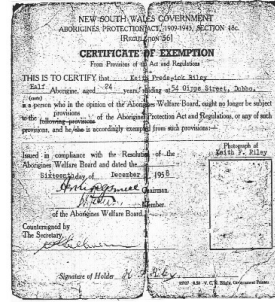 NEW SOUTH WALES GOVERNMENT
ABORIGINES PROTECTION ACT, 1909-1943, SECTION 18c.
[REGULATION 56]
CERTIFICATE OF EXEMPTION
From Provisions of the Act and Regulations
THIS IS TO CERTIFY that Keith Frederick Riley
Half Aborigine, aged 24 years, residing at 54 Gipps Street, Dubbo,
(caste)
is a person who in the opinion of the Aborigines Welfare Board, ought no longer be subject
provisions
to the following provisions of the Aborigines Protection Act and Regulations, or any of such
provisions, and he/she is accordingly exempted from such provisions:—
Photograph of
Keith F. Riley
Issued in compliance with the Resolution of the
Aborigines Welfare Board and dated the
Sixteenth day of December, 1958
Chairman.
Member.
of the Aborigines Welfare Board.
Countersigned by
The Secretary.
Signature of Holder K. F. Riley
V. C. N. Blight, Government Printer